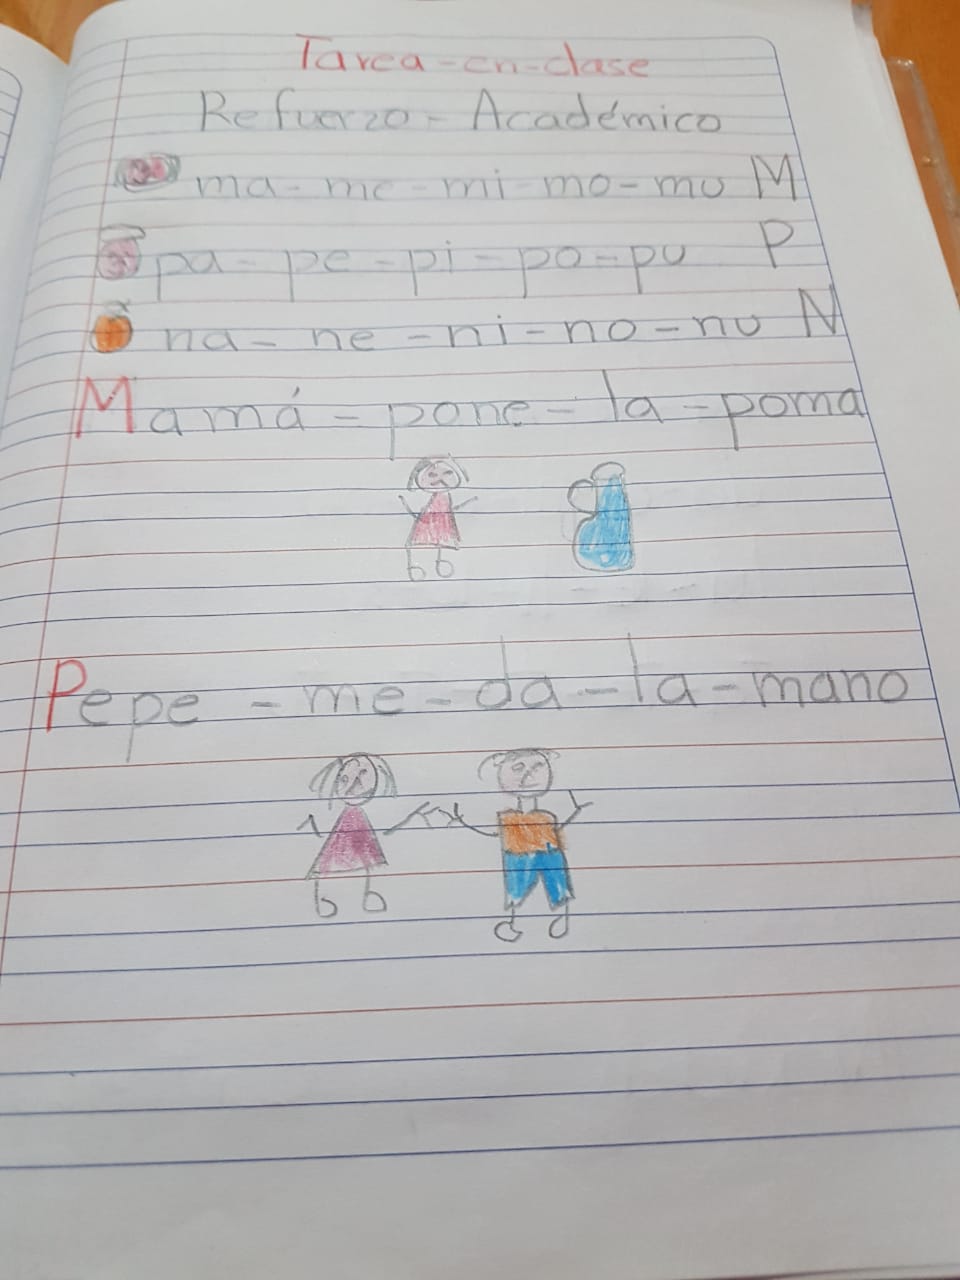 Tarea-en-clase
Refuerzo - Académico
ma - me - mi - mo - mu M
pa - pe - pi - po - pu P
na - ne - ni - no - nu N
Mamá - pone - la - poma
Pepe - me - da - la - mano